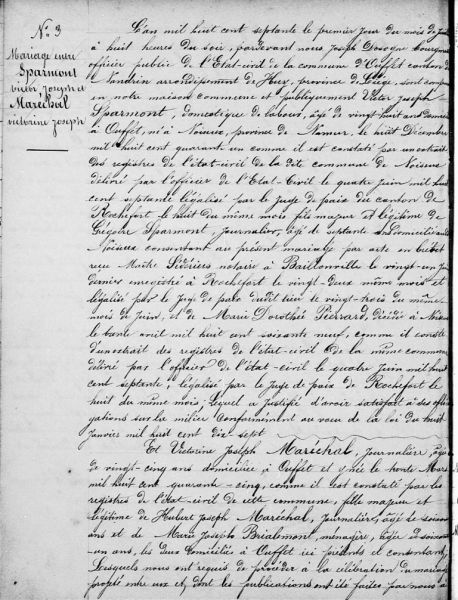 N° 3
Mariage entre
Sparmont
victor joseph et
Maréchal
victorine joseph
L'an mil huit cent septante le premier jour du mois de
à huit heures du soir, pardevant nous Joseph Dosogne bourgmestre
officier public de l'Etat-civil de la commune d'Ouffet canton de
Nandrin arrondissement de Huy, province de Liège, sont comparus
en notre maison commune et publiquement Victor Joseph
Sparmont, domestique de labour, âgé de vingt huit ans domicilié
à Ouffet, né à Noiseux, province de Namur, le huit Décembre
mil huit cent quarante un comme il est constaté par un extrait
des registres de l'état-civil de la dite commune de Noiseux
délivré par l'officier de l'Etat-Civil le quatre juin mil huit
cent septante légalisé par le Juge de paix du canton de
Rochefort le huit du même mois fils majeur et légitime de
Grégoire Sparmont, journalier, âgé de septante ans domicilié à
Noiseux consentant au présent mariage par acte en brevet
reçu Maître notaire à Baillonville le vingt-un juin
dernier enregistré à Rochefort le vingt-deux même mois et
légalisé par le Juge de paix dudit lieu le vingt-trois du même
mois de juin, et de Marie Dorothée Pierrard, décédée à Noiseux
le trente avril mil huit cent soixante neuf, comme il conste
d'un extrait des registres de l'état-civil de la même commune
délivré par l'officier de l'état-civil le quatre juin mil huit
cent septante, légalisé par le Juge de Paix de Rochefort le
huit du même mois; Lequel a justifié d'avoir satisfait à ses obli-
gations sur la milice conformément au vœu de la loi du huit
Janvier mil huit cent dix sept
Et Victorine Joseph Maréchal, Journalière, âgée
de vingt-cinq ans domiciliée à Ouffet et y née le trente Mars
mil huit cent quarante-cinq, comme il est constaté par les
registres de l'état-civil de cette commune, fille majeure et
légitime de Hubert Joseph Maréchal, Journalier, âgé de soixante
ans et de Marie Josephe Brialmont, ménagère, âgée de soixante
un ans, les deux domiciliés à Ouffet ici présents et consentant,
Lesquels nous ont requis de procéder à la célébration du mariage
projeté entre eux et dont les publications ont été faites par nous à